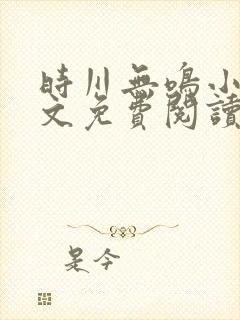 時川無鳴小
文免費閱讀
是今